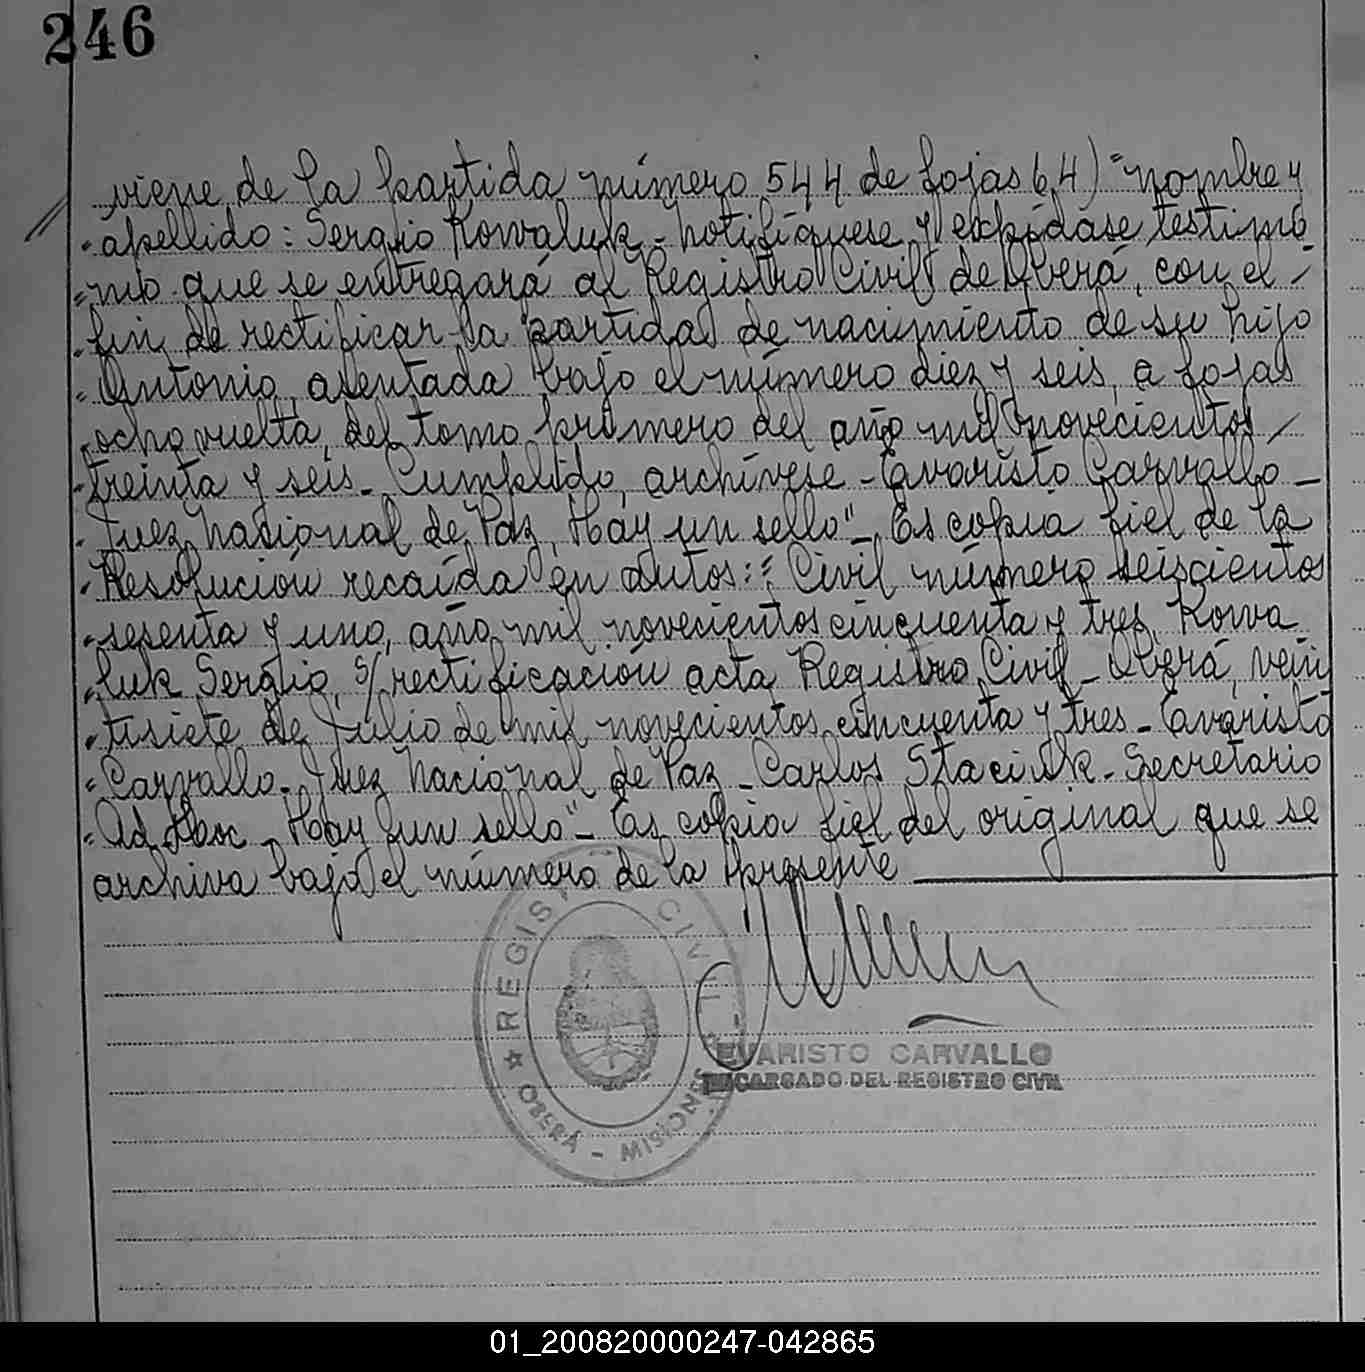 246
viene de la partida número 544 de fojas 64) "nombre y
" apellido: Sergio Kowaluk - Notifíquese y expídase testimo
" nio que se entregará al Registro Civil de Oberá, con el /
" fin de rectificar la partida de nacimiento de su hijo
" Antonio, asentada bajo el número diez y seis, a fojas
" ocho vuelta, del tomo primero del año mil novecientos /
" treinta y seis - Cumplido, archívese - Evaristo Carvallo -
" Juez Nacional de Paz, Hay un sello" - Es copia fiel de la
" Resolución recaída en autos: "Civil número seiscientos
" sesenta y uno, año mil novecientos cincuenta y tres, Kowa
" luk Sergio, s/ rectificación acta Registro Civil - Oberá, vein
" tisiete de Julio de mil novecientos cincuenta y tres - Evaristo
" Carvallo - Juez Nacional de Paz - Carlos Staciuk - Secretario
" Ad Hoc - Hay un sello" - Es copia fiel del original que se
archiva bajo el número de la presente
REGISTRO CIVIL
OBERÁ - MISIONES
EVARISTO CARVALLO
ENCARGADO DEL REGISTRO CIVIL
01_200820000247-042865